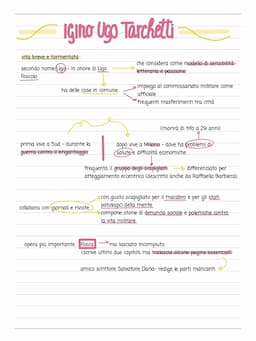 IGINO UGO TARCHETTI
vita breve e tormentata
secondo nome Ugo - in onore di Ugo Foscolo
che considera come modello di sensibilità letteraria e passione
ha delle cose in comune
impiego al commissariato militare come ufficiale
frequenti trasferimenti tra città
(morirà di tifo a 29 anni)
prima vive a Sud - durante la guerra contro il brigantaggio
dopo vive a Milano - dove ha problemi di salute e difficoltà economiche
frequenta il gruppo degli scapigliati
differenziato per atteggiamento eccentrico (descritto anche da Raffaello Barbiera)
collabora con giornali e riviste
con gusto scapigliato per il macabro e per gli stati patologici della mente
compone storie di denuncia sociale e polemiche contro la vita militare
opera più importante Fosca
ma lasciato incompiuto
scrive ultimi due capitoli, ma tralascia alcune pagine essenziali
amico scrittore Salvatore Farina- redige le parti mancanti